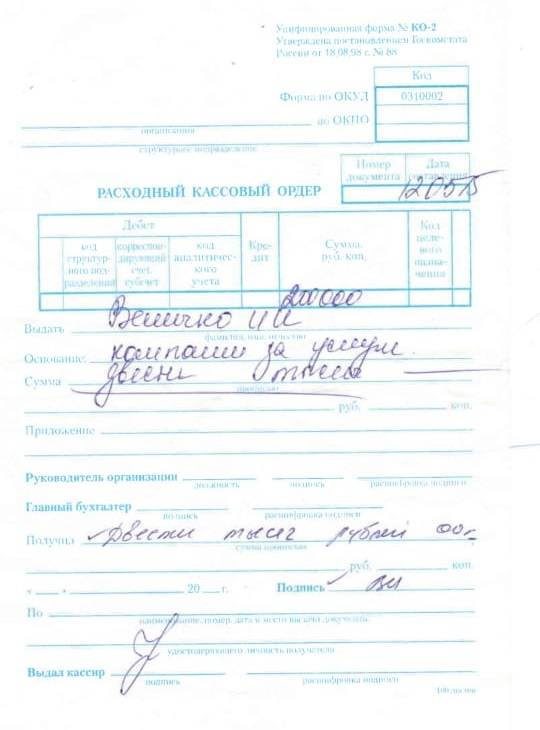 Унифицированная форма № КО-2
Утверждена постановлением Госкомстата
России от 18.08.98 г. № 88
Код
Форма по ОКУД 0310002
по ОКПО
организация
структурное подразделение
Номер документа Дата составления
РАСХОДНЫЙ КАССОВЫЙ ОРДЕР 120515
Дебет
код структурного подразделения
корреспондирующий счет, субсчет
код аналитического учета
Кредит
Сумма, руб. коп.
Код целевого назначения
200000
Выдать Величко
фамилия, имя, отчество
Основание: компании за услуги
Сумма двести тысяч
прописью
руб. коп.
Приложение
Руководитель организации
должность подпись расшифровка подписи
Главный бухгалтер
подпись расшифровка подписи
Получил Двести тысяч рублей 00
сумма прописью
руб. коп.
« » 20 г. Подпись
По
наименование, номер, дата и место выдачи документа,
удостоверяющего личность получателя
Выдал кассир
подпись расшифровка подписи